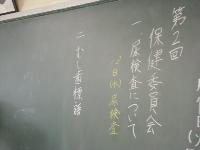 第2回
保健委員会
一 尿検査について
12日(水)尿検査
二 むし歯標語